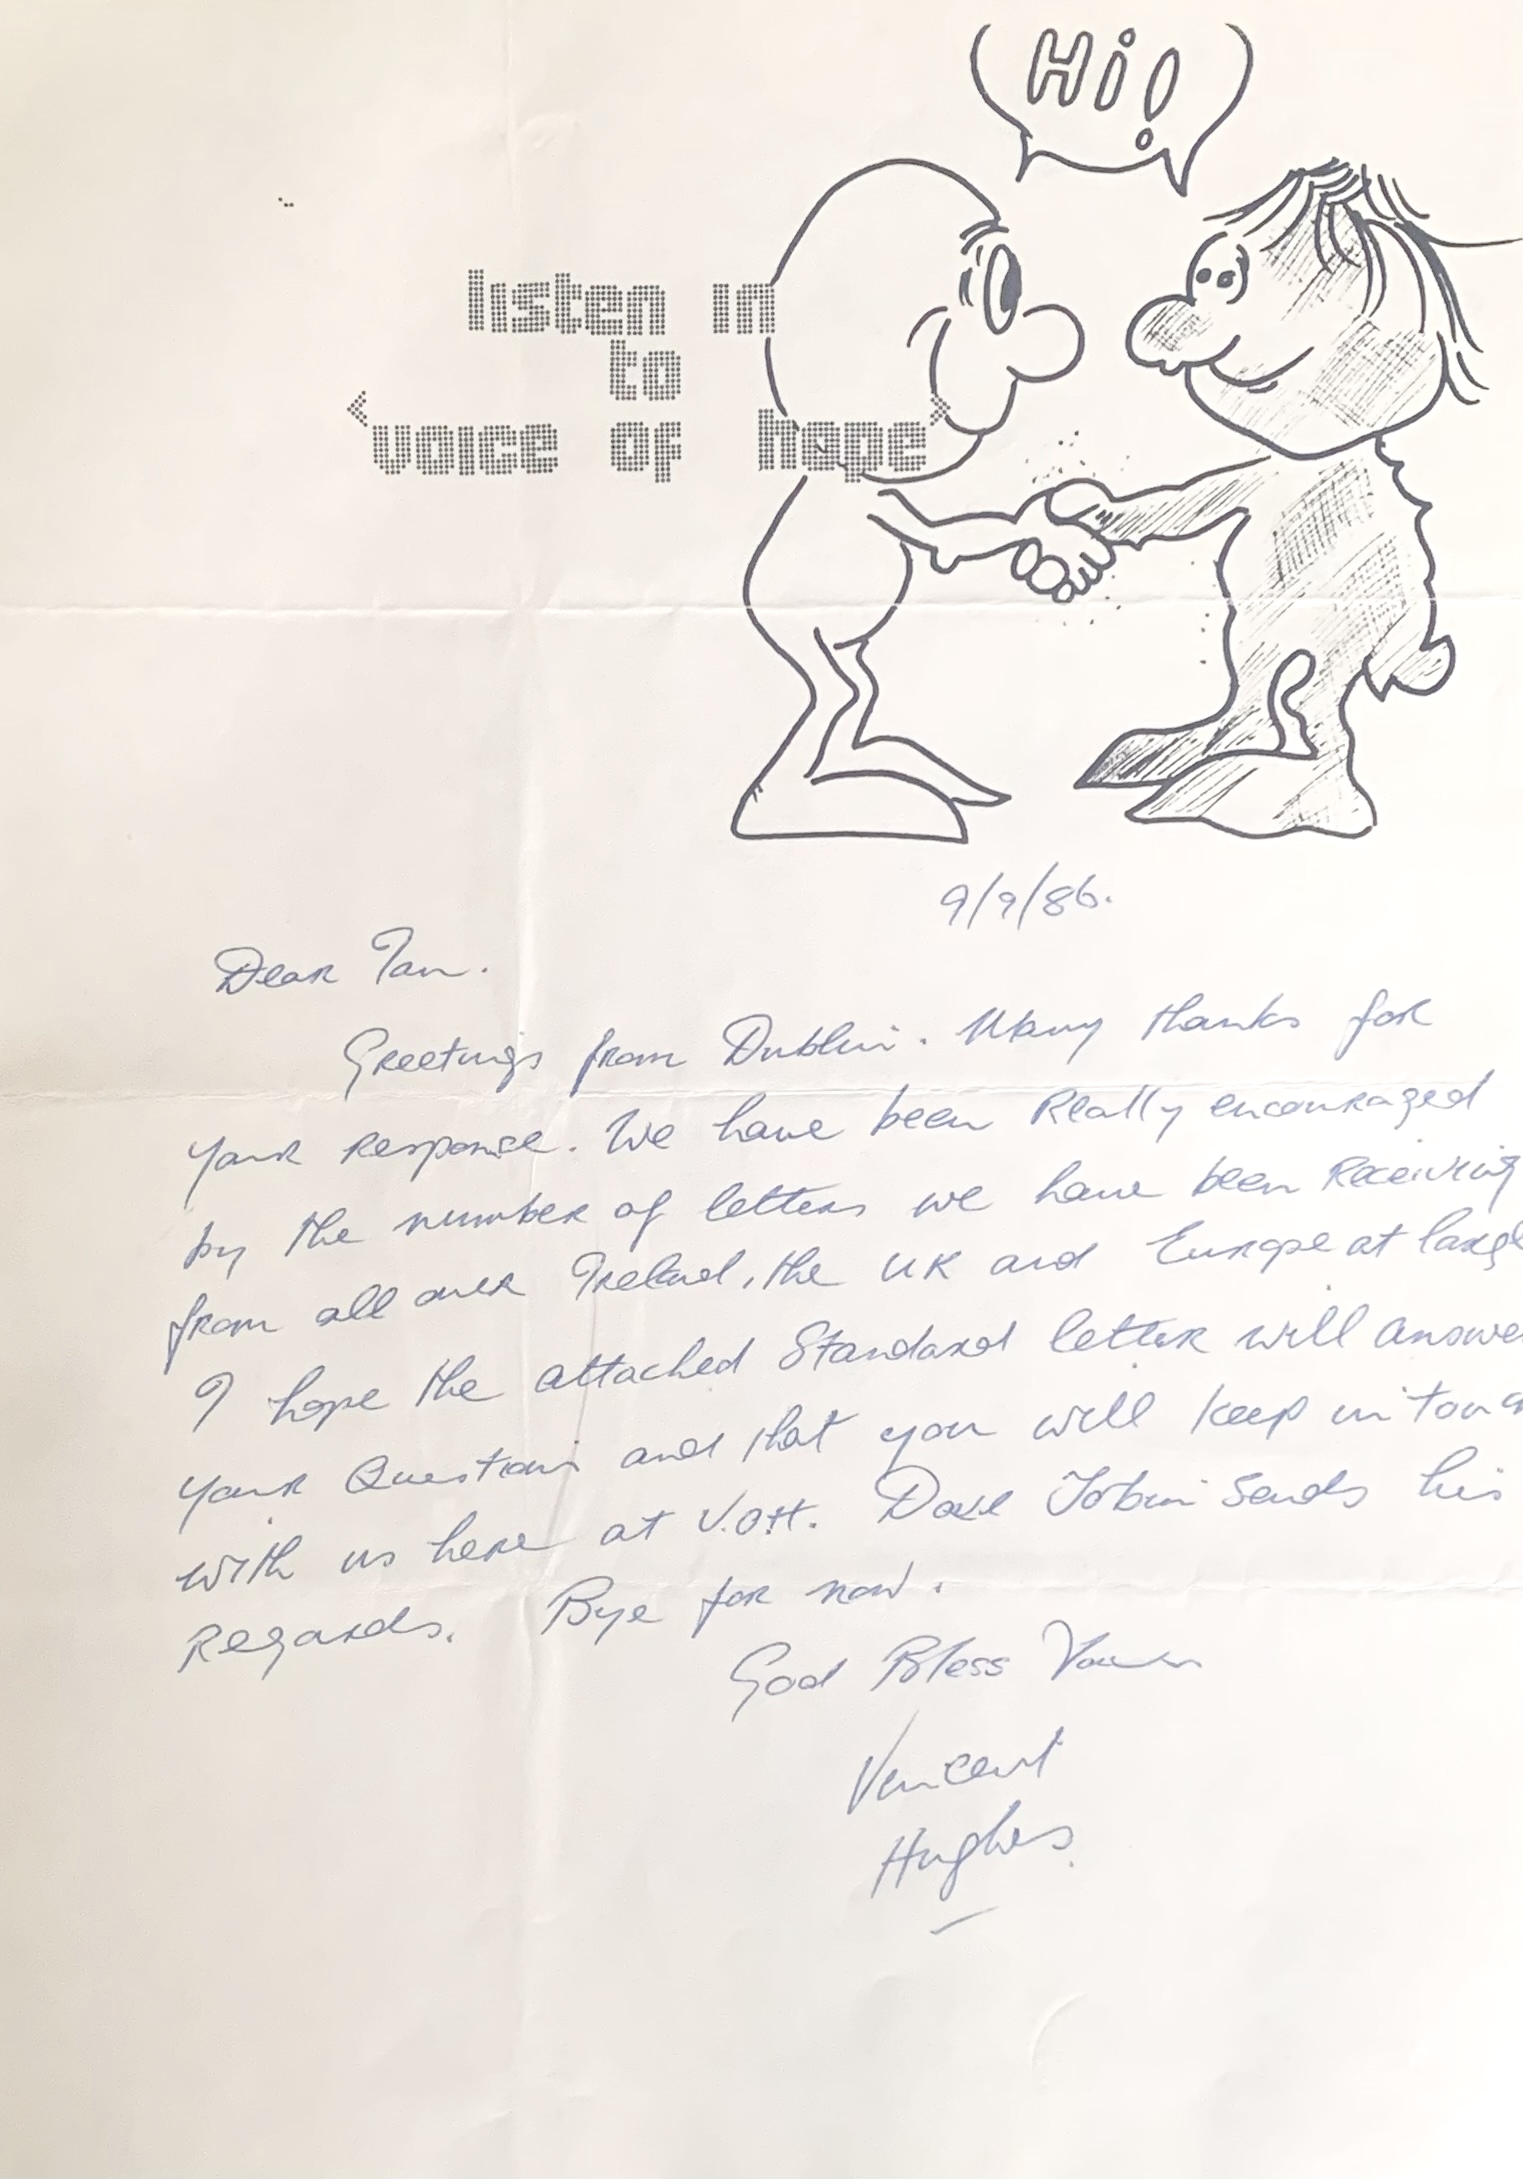 Hi!
listen in
to
‹voice of hope›
9/9/86.
Dear Ian.
Greetings from Dublin. Many thanks for
your response. We have been Really encouraged
by the number of letters we have been Receiving
from all over Ireland, the UK and Europe at large
I hope the attached Standard letter will answe
your Questions and that you will keep in touc
with us here at V.O.H. Dave Tobin sends his
Regards. Bye for now.
God Bless
Vincent
Hughes.